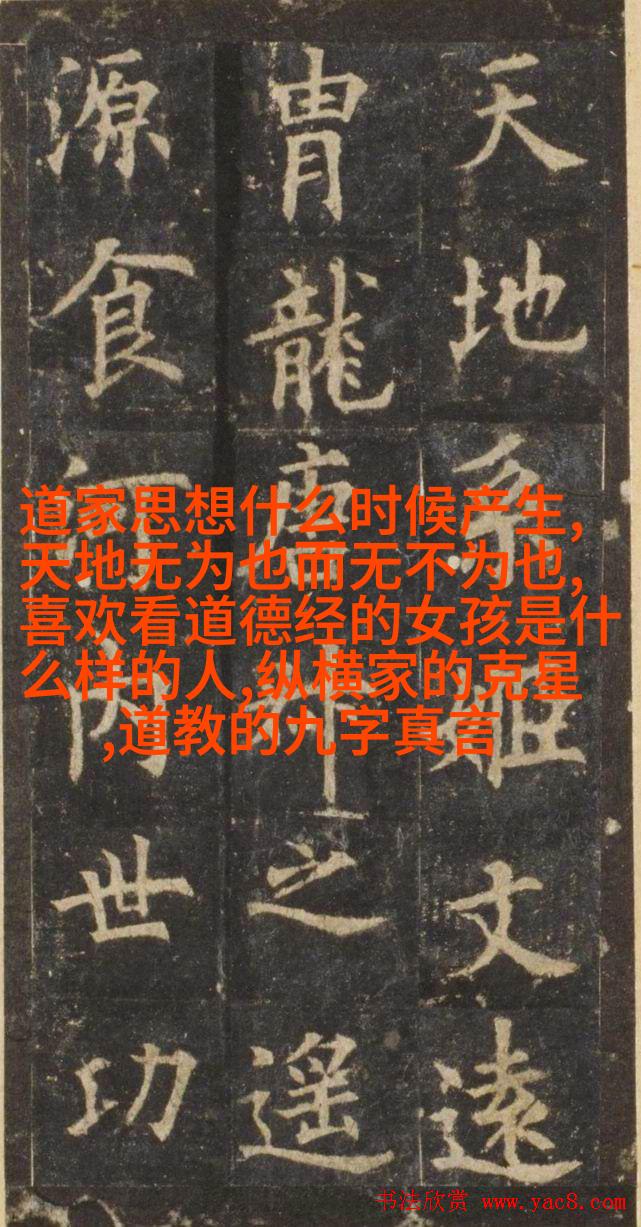 天地系姬文遠
胄龍唐之遥
源食河内世功
道家思想什么时候产生,
天地无为也而无不为也,
喜欢看道德经的女孩是什
么样的人,纵横家的克星
,道教的九字真言
书法欣赏 www.yac8.com